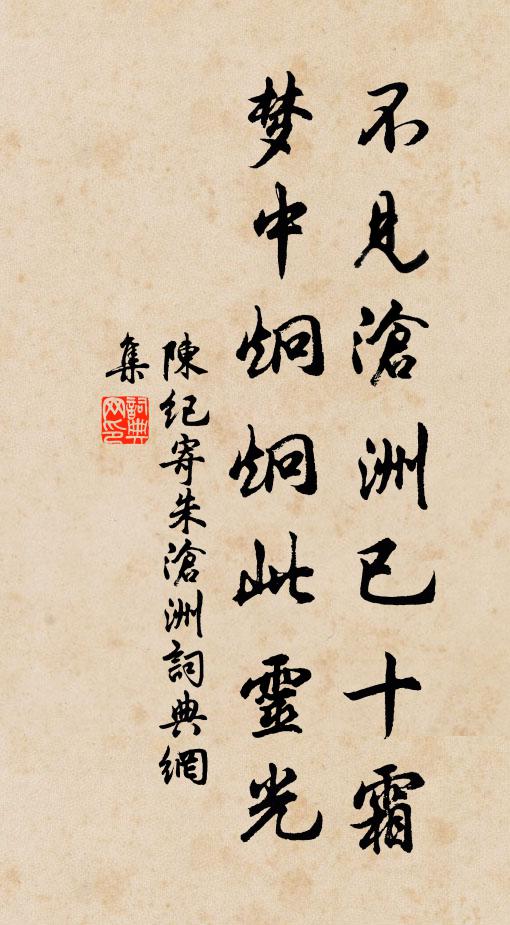 不見滄洲已十霜
梦中炯炯此靈光
陳纪寄朱滄洲詞典網
集
詞典網印